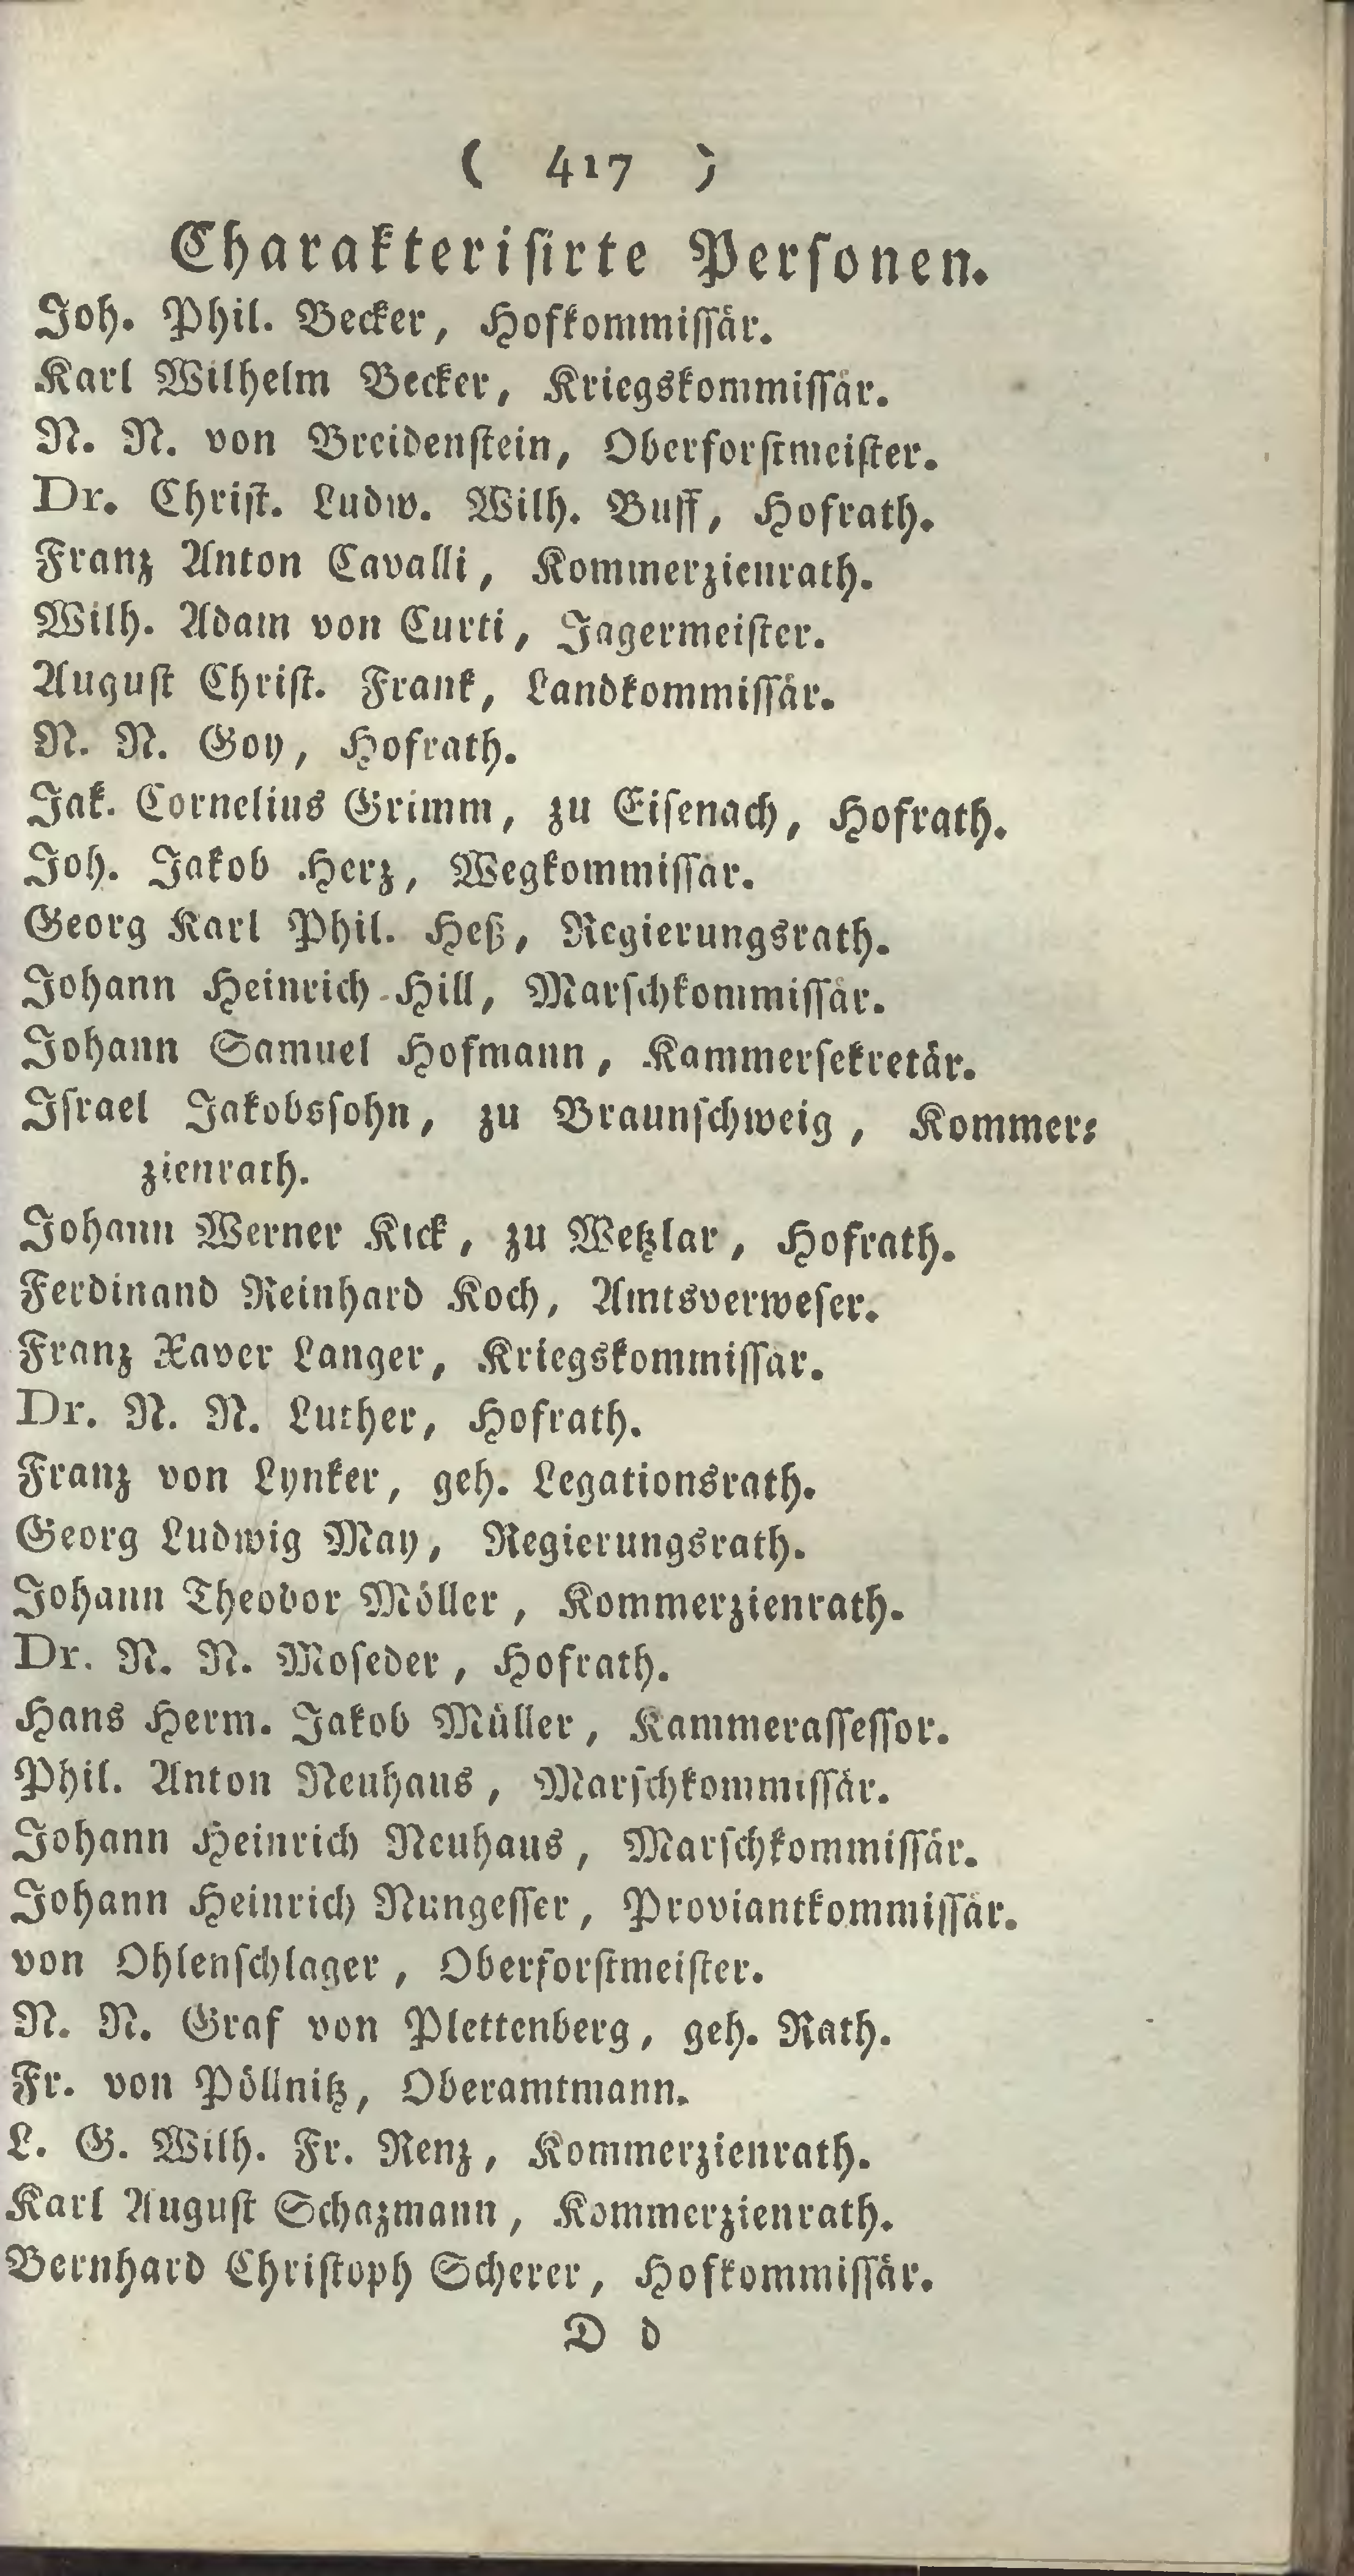 ( 417 )
Charakteriſirte Perſonen.
Joh. Phil. Becker, Hofkommiſſär.
Karl Wilhelm Becker, Kriegskommiſſär.
N. N. von Breidenſtein, Oberforſtmeiſter.
Dr. Chriſt. Ludw. Wilh. Buff, Hofrath.
Franz Anton Cavalli, Kommerzienrath.
Wilh. Adam von Curti, Jagermeiſter.
Auguſt Chriſt. Frank, Landkommiſſär.
N. N. Goy, Hofrath.
Jak. Cornelius Grimm, zu Eiſenach, Hofrath.
Joh. Jakob Herz, Wegkommiſſar.
Georg Karl Phil. Heß, Regierungsrath.
Johann Heinrich Hill, Marſchkommiſſär.
Johann Samuel Hofmann, Kammerſekretär.
Iſrael Jakobsſohn, zu Braunſchweig, Kommer⸗
zienrath.
Johann Werner Kick, zu Wetzlar, Hofrath.
Ferdinand Reinhard Koch, Amtsverweſer.
Franz Xaver Langer, Kriegskommiſſar.
Dr. N. N. Luther, Hofrath.
Franz von Lynker, geh. Legationsrath.
Georg Ludwig May, Regierungsrath.
Johann Theodor Möller, Kommerzienrath.
Dr. N. N. Moſeder, Hofrath.
Hans Herm. Jakob Müller, Kammeraſſeſſor.
Phil. Anton Neuhaus, Marſchkommiſſär.
Johann Heinrich Neuhaus, Marſchkommiſſär.
Johann Heinrich Nungeſſer, Proviantkommiſſär.
von Ohlenſchlager, Oberforſtmeiſter.
N. N. Graf von Plettenberg, geh. Rath.
Fr. von Pöllnitz, Oberamtmann.
L. G. Wilh. Fr. Renz, Kommerzienrath.
Karl Auguſt Schazmann, Kommerzienrath.
Bernhard Chriſtoph Scherer, Hofkommiſſär.
D d